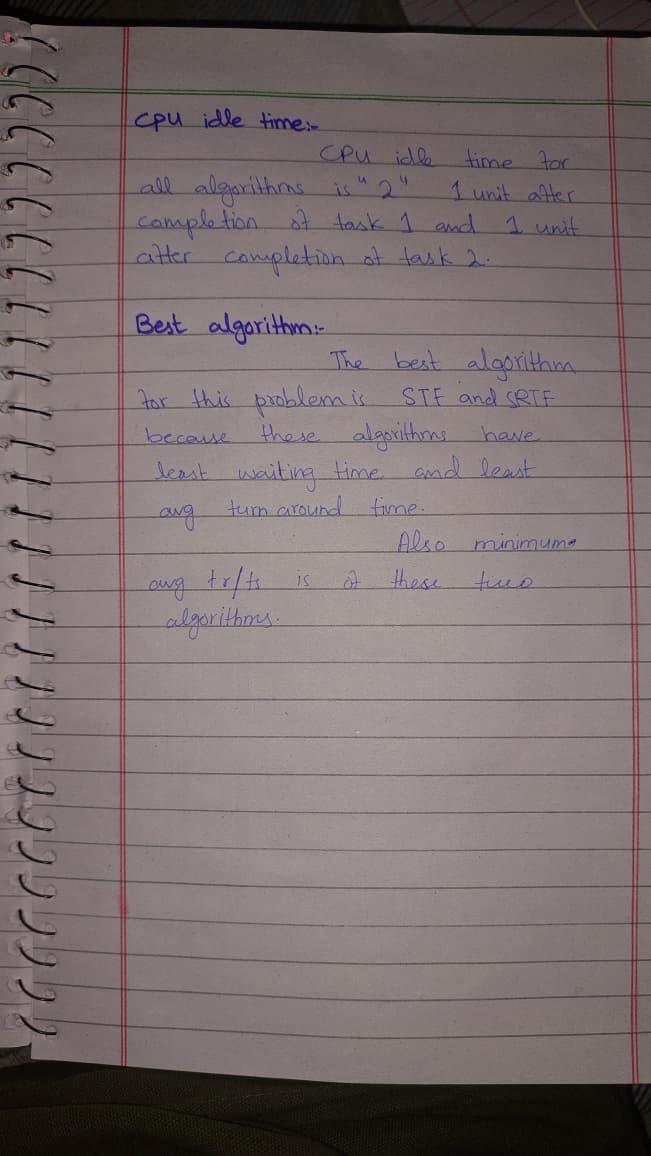 CPU idle time:-
CPU idle time for
all algorithms is "2" 1 unit after
completion of task 1 and 1 unit
after completion of task 2.
Best algorithm:-
The best algorithm
for this problem is STF and SRTF
because these algorithms have
least waiting time and least
avg turn around time.
Also minimum
avg tr/ts is of these two
algorithms.